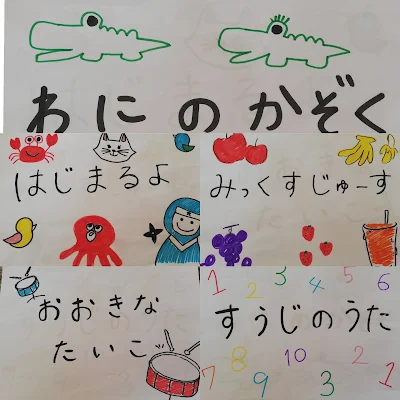 わにのかぞく
はじまるよ
みっくすじゅーす
おおきな
たいこ
すうじのうた
1 2 3 4 5 6
7 8 9 10 3 2 1